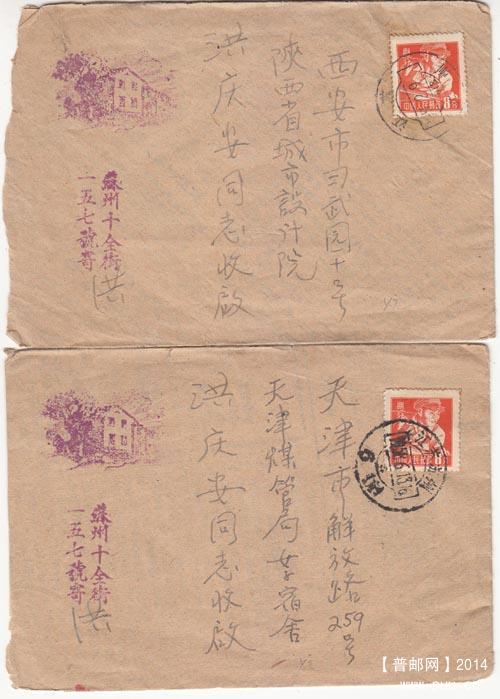 西安市习武园十号
陕西省城市設计院
洪庆安同志收啟
蘇州十全街
一五七號寄
洪
8分
天津市解放路259号
天津煤管局女宿舍
洪庆安同志收啟
蘇州十全街
一五七號寄
洪
【普邮网】2014